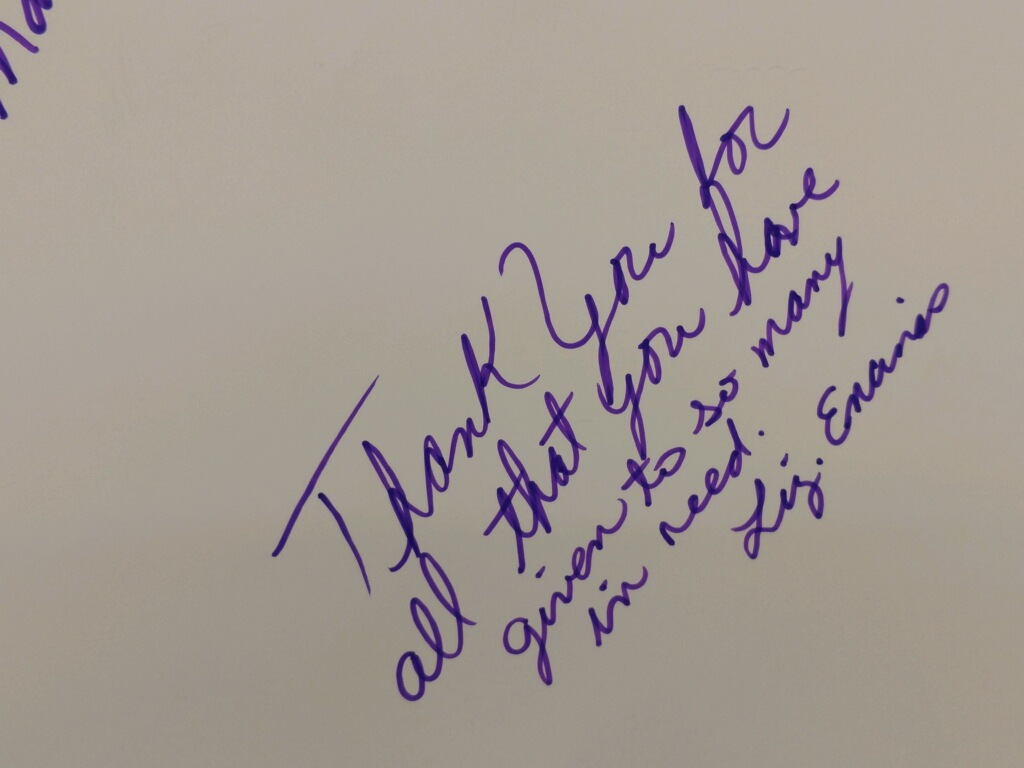 Thank You for
all that you have
given to so many
in need.
Liz. Enanis